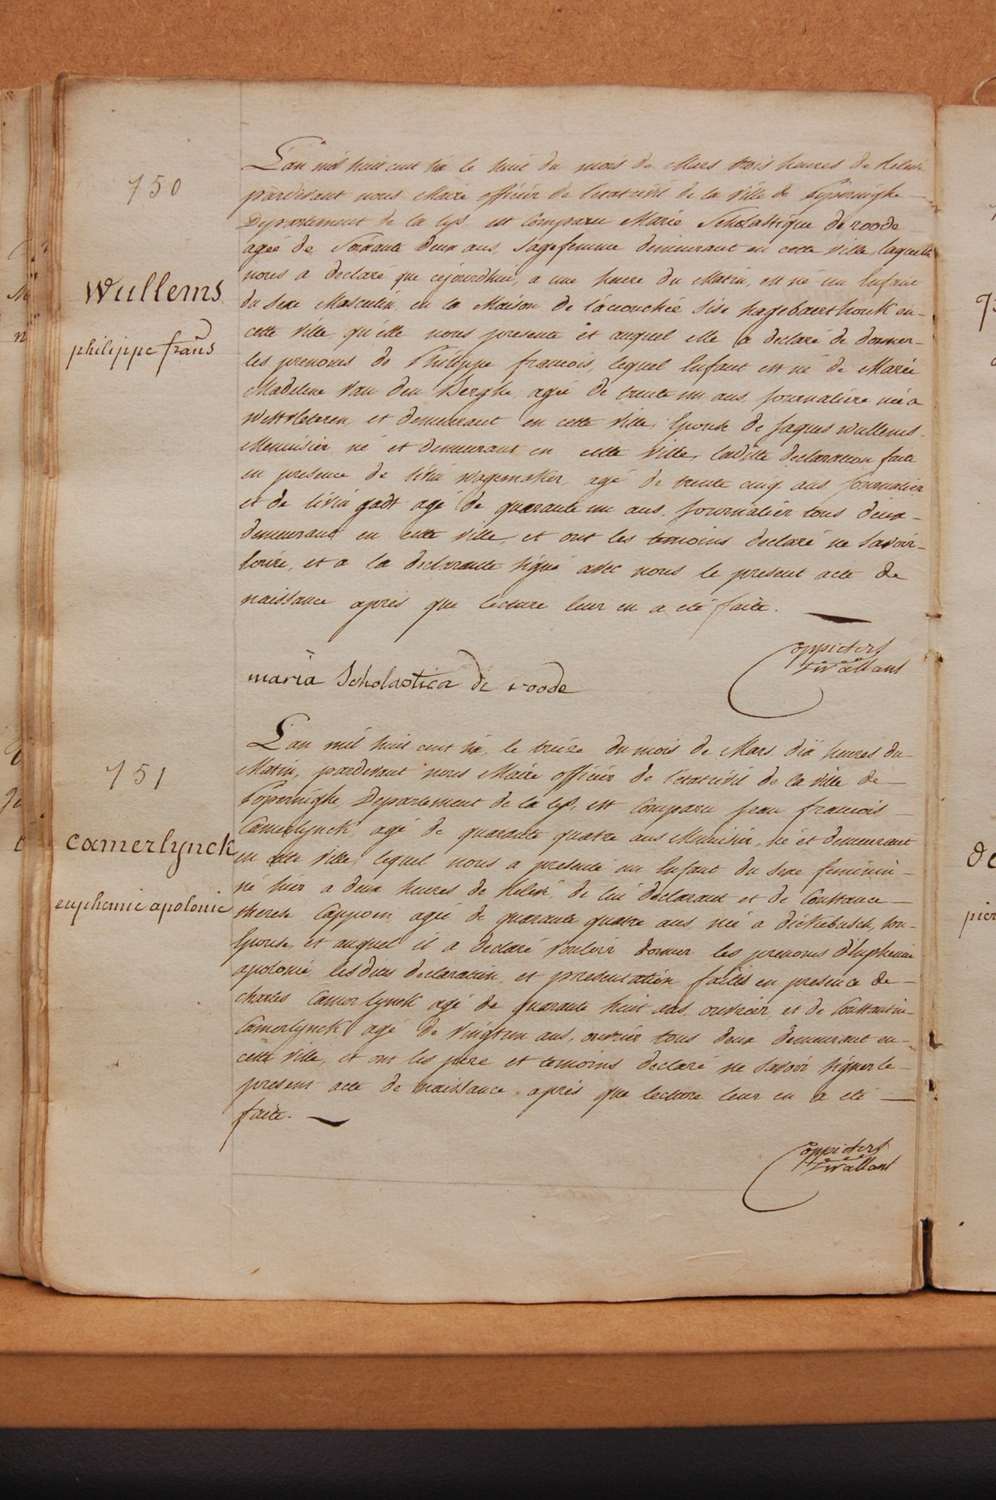 750
Wullems
philippe frans
L'an mil huit cent six le huit du mois de Mars trois heures de Relevé
pardevant nous Maire officier de l'état civil de la ville de Poperinghe
Departement de la Lys est Comparu Marie Scholastique de roode
agée de Soixante deux ans, Sagefemme demeurant en cette ville, laquelle
nous a declaré que cejourdhui, a une heure du Matin, est né un Enfant
du sexe Masculin, en la Maison de l'accouchée Sise hagebaert houk en
cette ville, qu'elle nous presente et auquel elle a declaré de donner
les prenoms de Philippe francois, lequel Enfant est né de Marie
Madeleine Van den Berghe, agée de trente un ans, journaliere née a
Westvleteren et demeurant en cette ville, Epouse de Jaques Wullems
Menuisier né et demeurant en cette ville, laditte declaration faite
en presence de wagemaker, agé de trente cinq ans journalier
et de livin gadt agé de quarante un ans, journalier tous deux
demeurant en cette ville, et ont les temoins declaré ne Savoir
Ecrire, et a la declarante signé avec nous le present acte de
naissance après que lecture leur en a eté faite.
maria Scholastica de roode
751
Camerlynck
euphemie apolonie
L'an mil huit cent six, le treize du mois de Mars dix heures du
Matin, pardevant nous Maire officier de l'état civil de la ville de
Poperinghe Departement de la Lys, est Comparu jean francois
Camerlynck, agé de quarante quatre ans Menuisier, né et demeurant
en cette ville, lequel nous a presenté un Enfant du sexe feminin
né hier a deux heures de Relevé, de lui declarant et de Constance
therese Cappoen agée de quarante quatre ans, née a dickebusch, son
Epouse, et auquel il a declaré vouloir donner les prenoms d'Euphemie
apolonie, lesdites declaration et presentation faites en presence de
charles Camerlynck agé de quarante huit ans, ouvrier et de Constantin
Camerlynck agé de vingt un ans, ouvrier tous deux demeurant en
cette ville, et ont les pere et temoins declaré ne savoir signer le
present acte de naissance, après que lecture leur en a eté
faite.